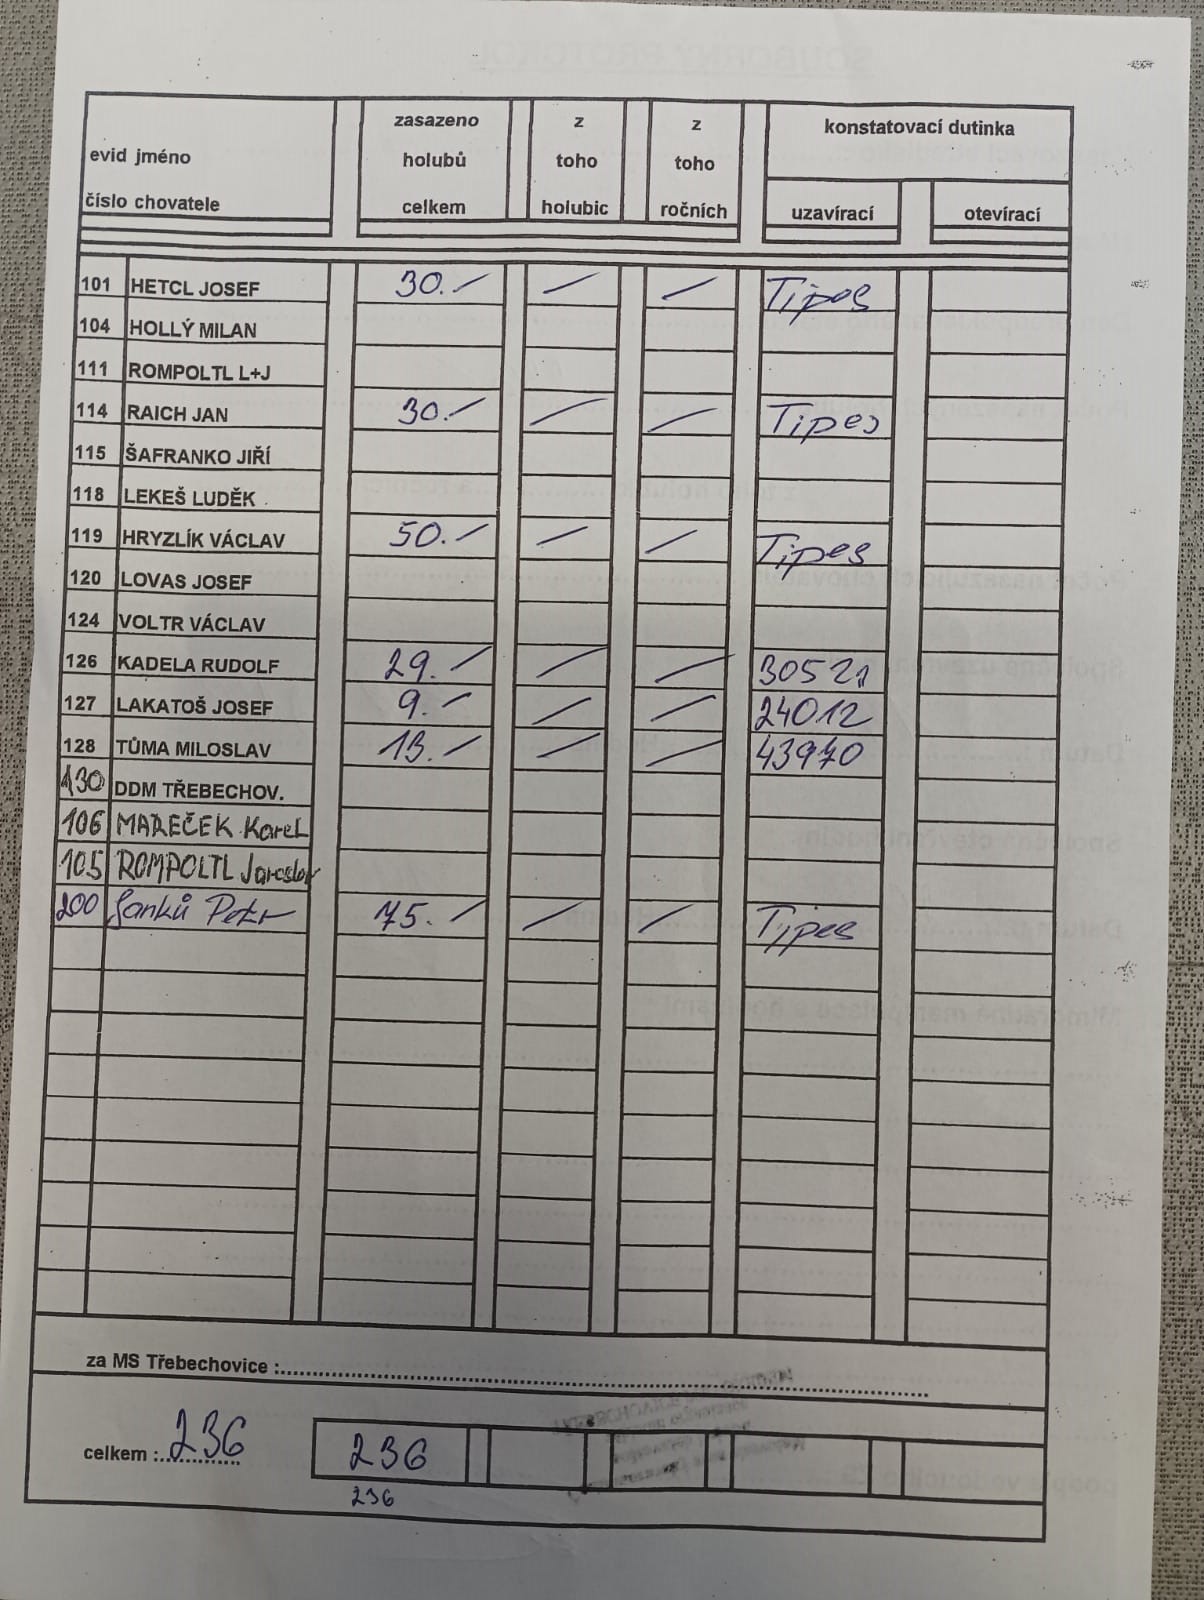 evid jméno
číslo chovatele
zasazeno
holubů
celkem
z
toho
holubic
z
toho
ročních
konstatovací dutinka
uzavírací
otevírací
101 HETCL JOSEF 30.- / / Tipes
104 HOLLÝ MILAN
111 ROMPOLTL L+J
114 RAICH JAN 30.- / / Tipes
115 ŠAFRANKO JIŘÍ
118 LEKEŠ LUDĚK
119 HRYZLÍK VÁCLAV 50.- / / Tipes
120 LOVAS JOSEF
124 VOLTR VÁCLAV
126 KADELA RUDOLF 29.- / / 30521
127 LAKATOŠ JOSEF 9.- / / 24012
128 TŮMA MILOSLAV 13.- / / 43970
130 DDM TŘEBECHOV.
106 MAREČEK Karel
105 ROMPOLTL Jaroslav
200 Janků Petr 75.- / / Tipes
za MS Třebechovice :
celkem : 236 236
236